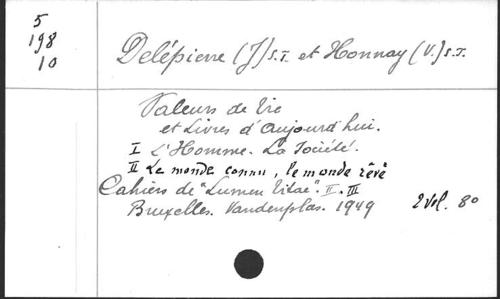 5
198
10
Delépierre (J) s.J. et Honnay (V.) s.J.
Valeurs de Vie
et Livres d'Aujourd'hui.
I L'Homme. La Société.
II Le monde connu, le monde rêvé
Cahiers de "Lumen Vitae". II. III
Bruxelles. Vandenplas. 1949 2 vol. 8o